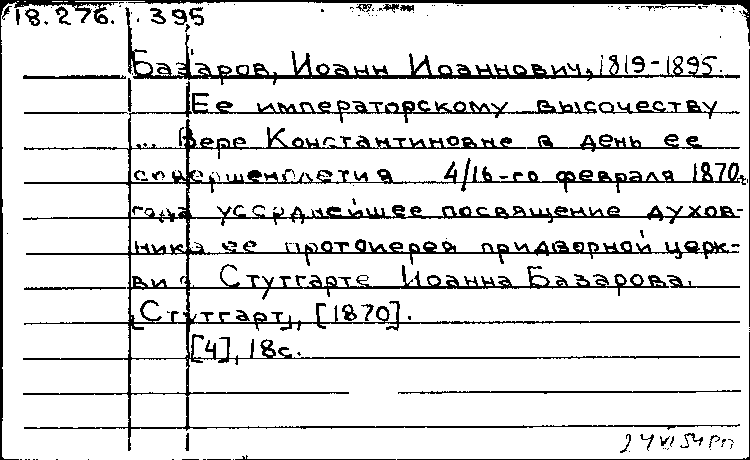 18.276.1.395
Базаров, Иоанн Иоаннович, 1819-1895.
Ее императорскому высочеству
... Вере Константиновне в день ее
совершеннолетия 4/16-го февраля 1870
года усерднейшее посвящение духов-
ника ее протоиерея придворной церк-
ви в Стутгарте Иоанна Базарова.
[Стутгарт], [1870].
[4], 18с.
24 VI 54